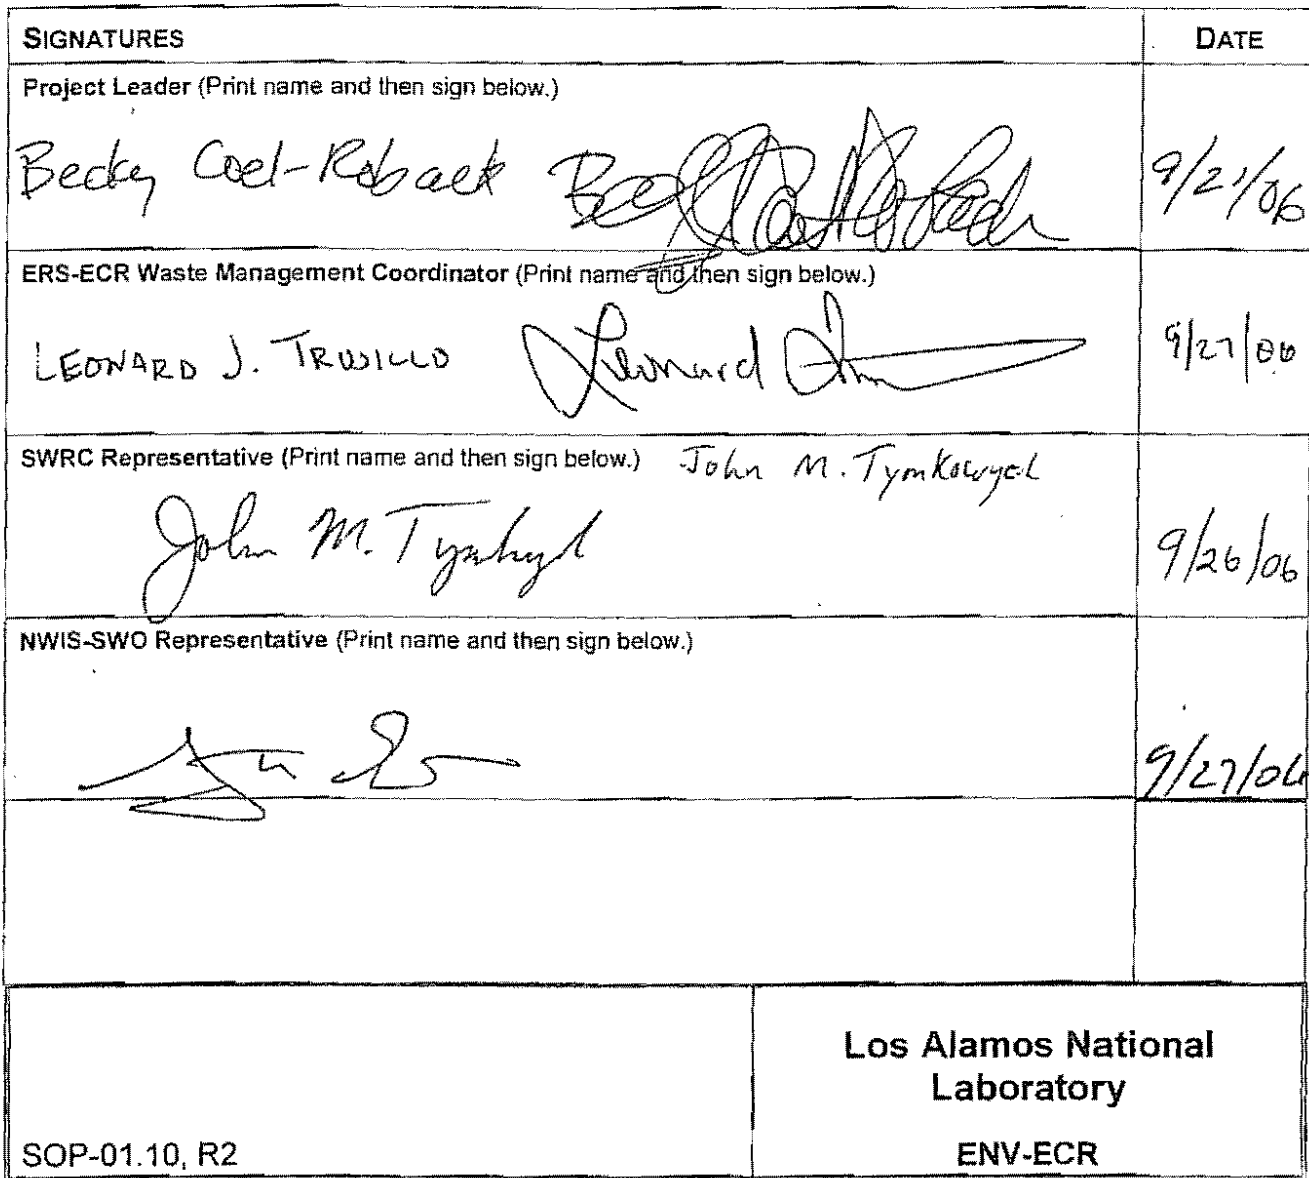 SIGNATURES DATE
Project Leader (Print name and then sign below.)
Becky Coel-Roback Becky Coel-Roback 9/21/06
ERS-ECR Waste Management Coordinator (Print name and then sign below.)
LEONARD J. TRUJILLO Leonard 9/27/06
SWRC Representative (Print name and then sign below.) John M. Tymkowych
John M. 9/26/06
NWIS-SWO Representative (Print name and then sign below.)
9/27/06
Los Alamos National
Laboratory
SOP-01.10, R2 ENV-ECR